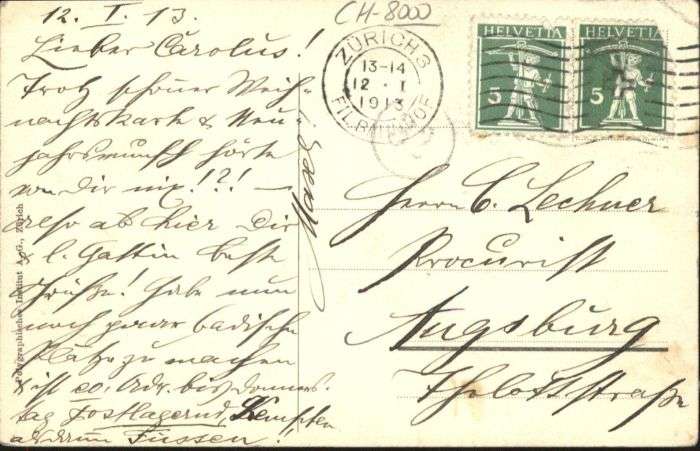 12. I. 13.
Lieber Carolus!
Trotz schöner Weih-
nachtskarte & Neu-
jahrswunsch hörte
von Dir nix!?! —
also ab hier Dir
& l. Gattin beste
Grüße! Habe nun
noch paar badische
Plätze zu machen
& ist eo. Adr. bis Donners-
tag postlagernd, Kempten
Füssen!
CH-8000
ZÜRICH 3
13-14
12 · I
1913
FIL. BAHNHOF
HELVETIA
5
HELVETIA
5
Herrn C. Lechner
Procurist
Augsburg
Photographischer Institut A.-G., Zürich